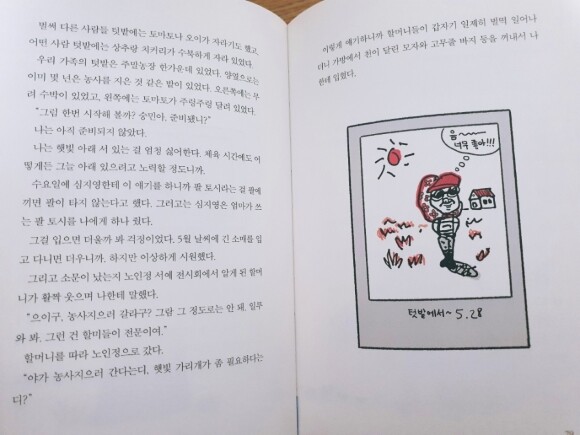 벌써 다른 사람들 텃밭에는 토마토나 오이가 자라기도 했고,
어떤 사람 텃밭에는 상추랑 치커리가 수북하게 자라 있었다.
우리 가족의 텃밭은 주말농장 한가운데 있었다. 양옆으로는
이미 몇 년은 농사를 지은 것 같은 밭이 있었다. 오른쪽에는 무
려 수박이 있었고, 왼쪽에는 토마토가 주렁주렁 달려 있었다.
“그럼 한번 시작해 볼까? 승민아, 준비됐니?”
나는 아직 준비되지 않았다.
나는 햇빛 아래 서 있는 걸 엄청 싫어한다. 체육 시간에도 어
떻게든 그늘 아래 있으려고 노력할 정도니까.
수요일에 심지영한테 이 얘기를 하니까 팔 토시라는 걸 팔에
끼면 팔이 타지 않는다고 했다. 그러고는 심지영은 엄마가 쓰
는 팔 토시를 나에게 하나 줬다.
그걸 입으면 더울까 봐 걱정이었다. 5월 날씨에 긴 소매를 입
고 다니면 더우니까. 하지만 이상하게 시원했다.
그리고 소문이 났는지 노인정 서예 전시회에서 알게 된 할머
니가 활짝 웃으며 나한테 말했다.
“으이구, 농사지으러 갈라구? 그람 그 정도로는 안 돼. 일루
와 봐. 그런 건 할미들이 전문이여.”
할머니를 따라 노인정으로 갔다.
“야가 농사지으러 간다는디, 햇빛 가리개가 좀 필요하다는
디?”
이렇게 얘기하니까 할머니들이 갑자기 일제히 벌떡 일어나
더니 가방에서 천이 달린 모자와 고무줄 바지 등을 꺼내서 나
한테 입혔다.
음~~
너무 좋아!!!
텃밭에서~ 5.28